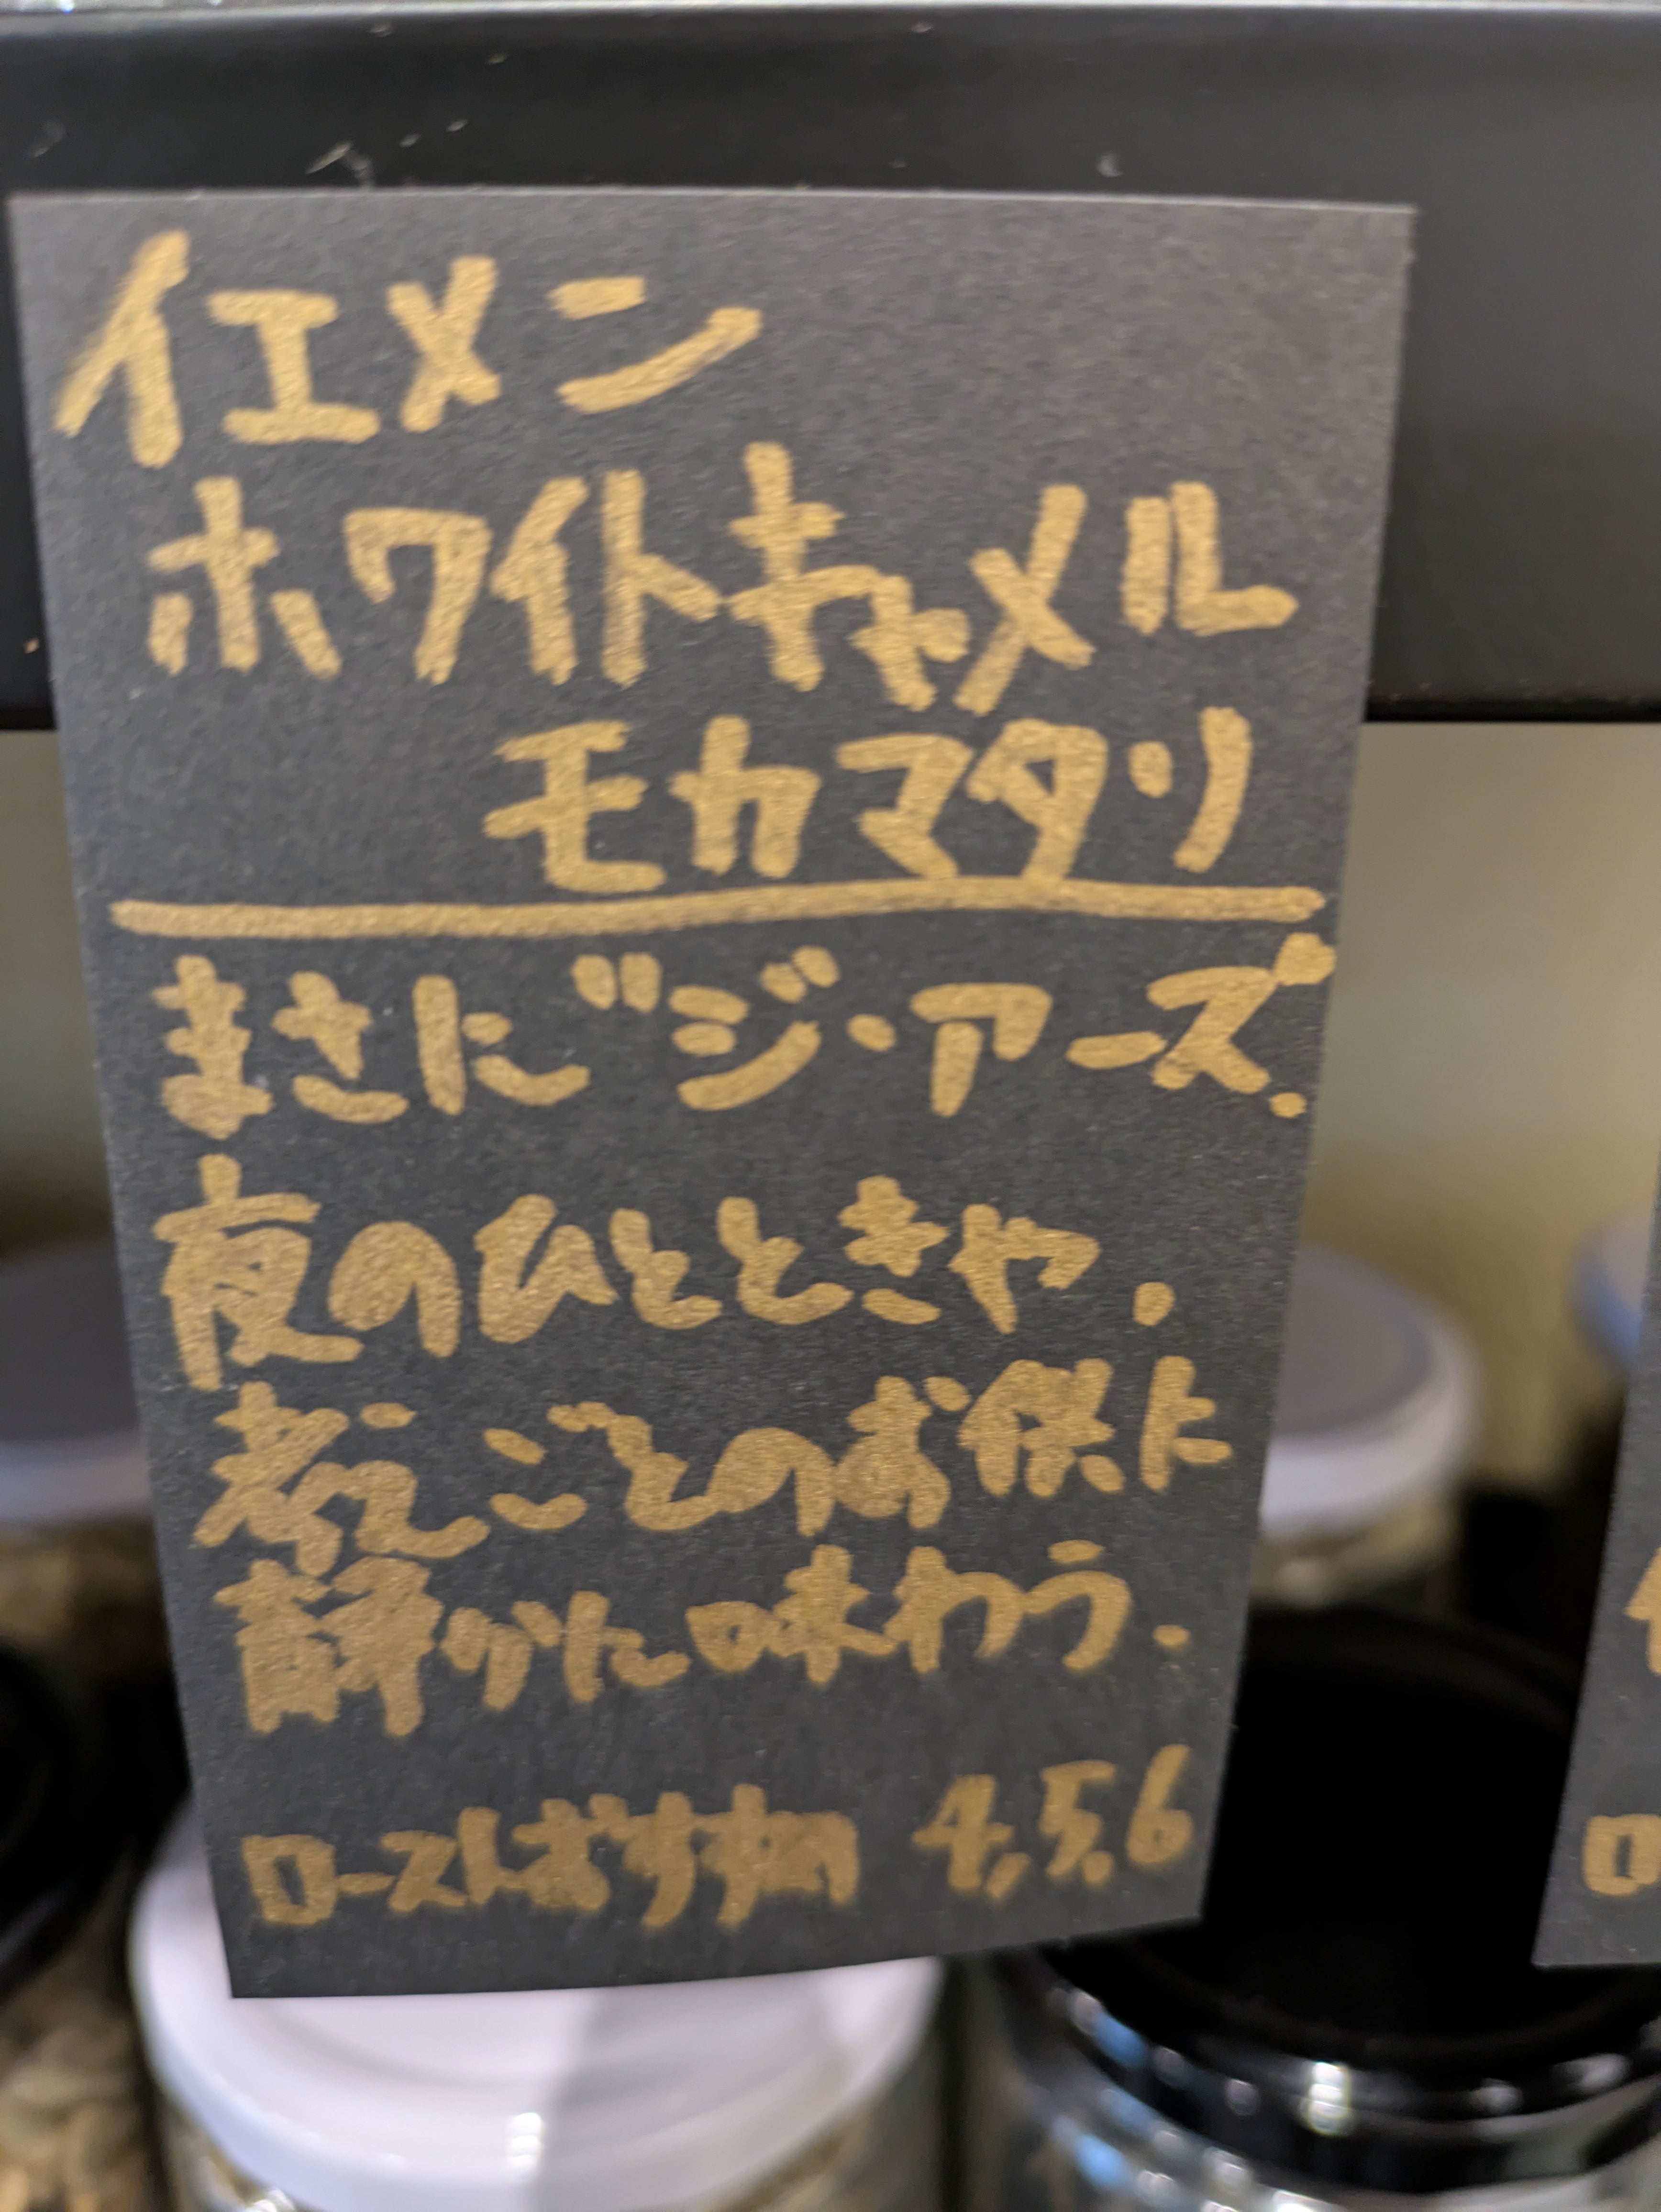 イエメン
ホワイトキャメル
モカマタリ
まさに"ジ・アース".
夜のひとときや.
考えごとのお供に
静かに味わう.
ローストおすすめ 4,5,6
ロ